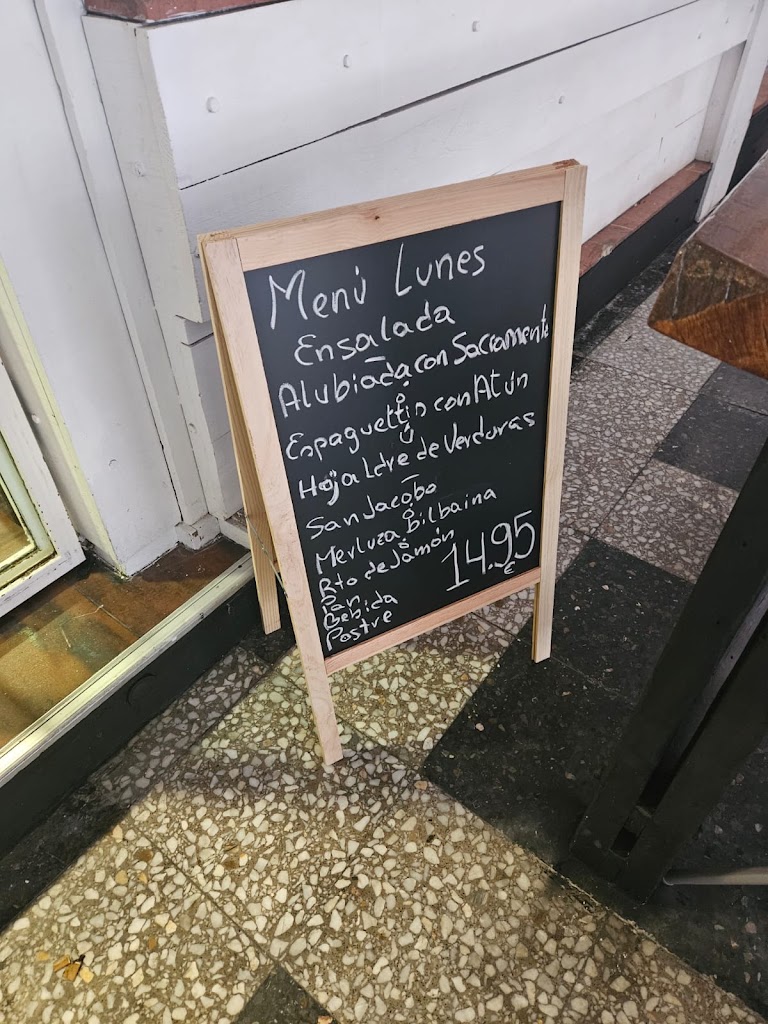 Menú Lunes
Ensalada
Alubiada con Sacramente
Espaguettis con Atún
Hojaldre de Verduras
San Jacobo
Merluza bilbaina
Rto de Jamón
Pan
Bebida
Postre
14.95
€